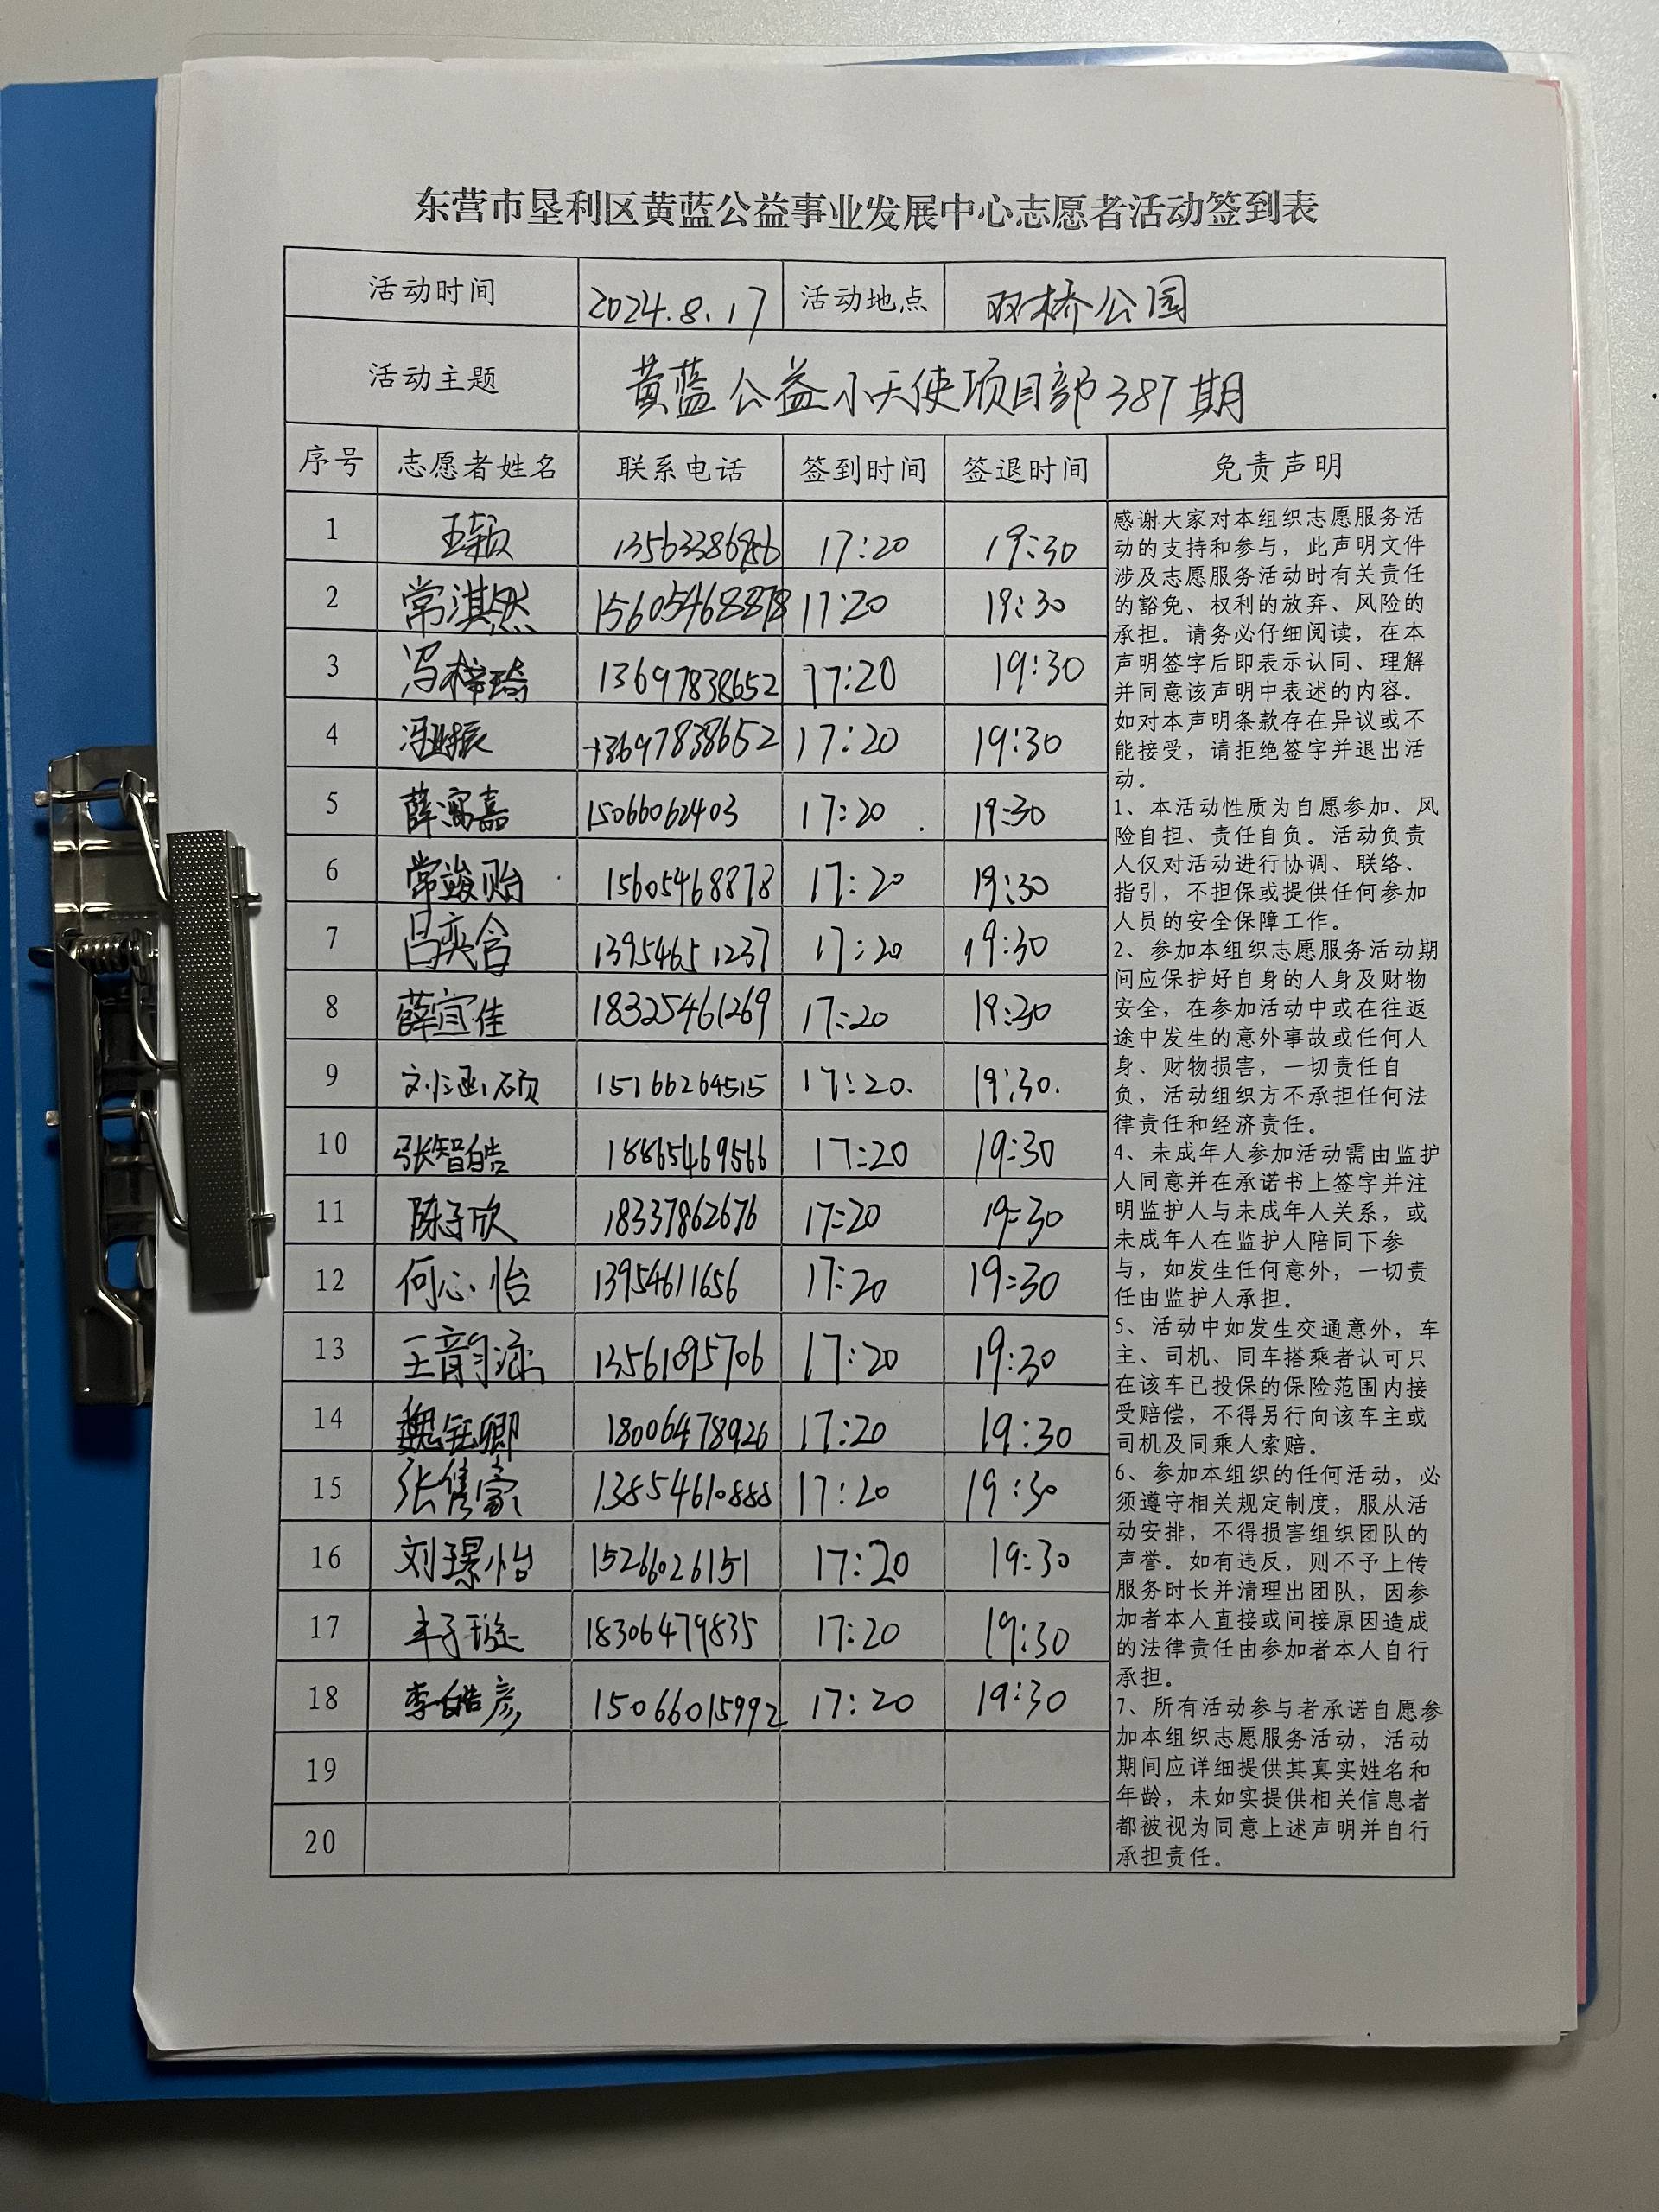 东营市垦利区黄蓝公益事业发展中心志愿者活动签到表
活动时间 2024.8.17 活动地点 双桥公园
活动主题 黄蓝公益小天使项目部387期
序号 志愿者姓名 联系电话 签到时间 签退时间 免责声明
1 王颖 17:20 19:30
2 常淇然 15605468878 17:20 19:30
3 冯梓琦 13697838652 17:20 19:30
4 13697838652 17:20 19:30
5 15066062403 17:20 19:30
6 常竣贻 15605468878 17:20 19:30
7 吕奕含 13954651237 17:20 19:30
8 薛宜佳 18325461269 17:20 19:30
9 刘涵硕 15166264515 17:20. 19:30.
10 张智皓 18865469566 17:20 19:30
11 陈子欣 18337862676 17:20 19:30
12 何心怡 13954611656 17:20 19:30
13 王韵涵 13561895706 17:20 19:30
14 魏钰卿 18006478926 17:20 19:30
15 张隽豪 13854610888 17:20 19:30
16 刘璟怡 15266026151 17:20 19:30
17 丰子璇 18306479835 17:20 19:30
18 李皓彦 15066015992 17:20 19:30
19
20
感谢大家对本组织志愿服务活
动的支持和参与，此声明文件
涉及志愿服务活动时有关责任
的豁免、权利的放弃、风险的
承担。请务必仔细阅读，在本
声明签字后即表示认同、理解
并同意该声明中表述的内容。
如对本声明条款存在异议或不
能接受，请拒绝签字并退出活
动。
1、本活动性质为自愿参加、风
险自担、责任自负。活动负责
人仅对活动进行协调、联络、
指引，不担保或提供任何参加
人员的安全保障工作。
2、参加本组织志愿服务活动期
间应保护好自身的人身及财物
安全，在参加活动中或在往返
途中发生的意外事故或任何人
身、财物损害，一切责任自
负，活动组织方不承担任何法
律责任和经济责任。
4、未成年人参加活动需由监护
人同意并在承诺书上签字并注
明监护人与未成年人关系，或
未成年人在监护人陪同下参
与，如发生任何意外，一切责
任由监护人承担。
5、活动中如发生交通意外，车
主、司机、同车搭乘者认可只
在该车已投保的保险范围内接
受赔偿，不得另行向该车主或
司机及同乘人索赔。
6、参加本组织的任何活动，必
须遵守相关规定制度，服从活
动安排，不得损害组织团队的
声誉。如有违反，则不予上传
服务时长并清理出团队，因参
加者本人直接或间接原因造成
的法律责任由参加者本人自行
承担。
7、所有活动参与者承诺自愿参
加本组织志愿服务活动，活动
期间应详细提供其真实姓名和
年龄，未如实提供相关信息者
都被视为同意上述声明并自行
承担责任。